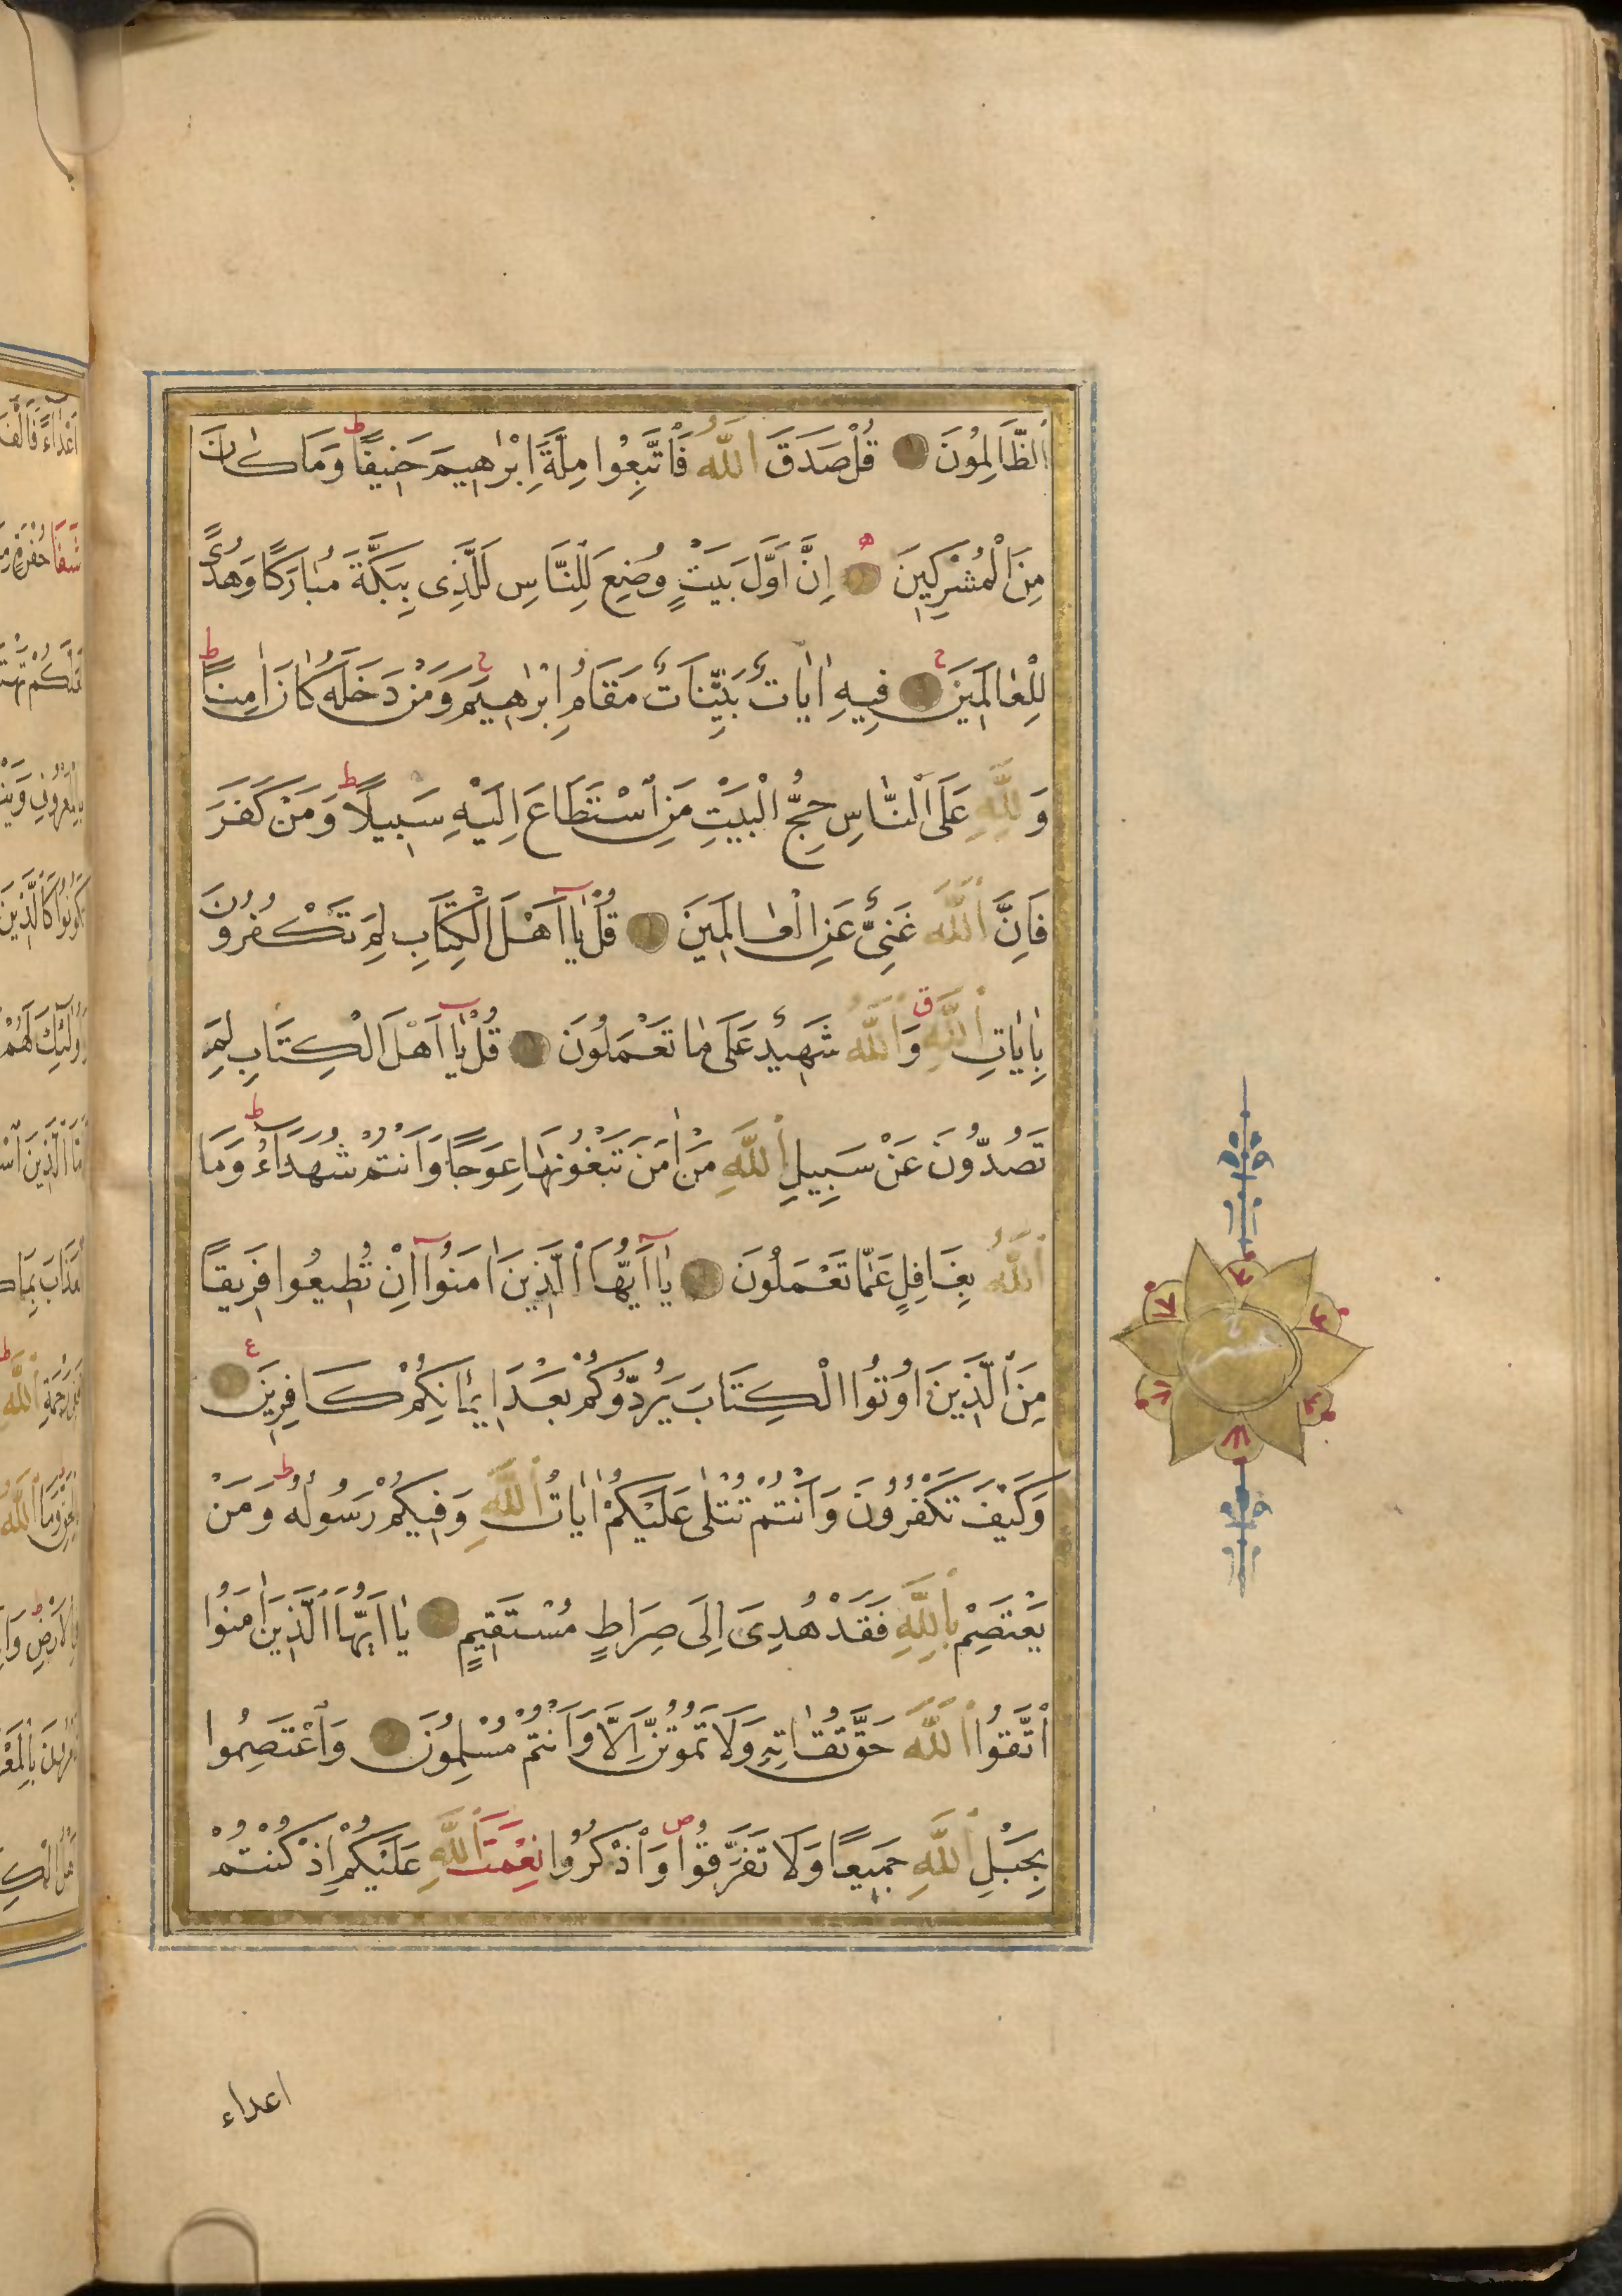 اَلظَّالِمُونَ قُلْ صَدَقَ اَللَّهُ فَاتَّبِعُوا مِلَّةَ اِبْرٰهِيمَ حَنِيفًا ط وَمَا كَانَ
مِنَ الْمُشْرِكِينَ ه اِنَّ اَوَّلَ بَيْتٍ وُضِعَ لِلنَّاسِ لَلَّذِى بِبَكَّةَ مُبَارَكًا وَهُدًى
لِلْعَالَمِينَ ج فِيهِ اٰيَاتٌ بَيِّنَاتٌ مَقَامُ اِبْرٰهِيمَ ج وَمَنْ دَخَلَهُ كَانَ اٰمِنًا ط
وَلِلَّهِ عَلَى النَّاسِ حِجُّ الْبَيْتِ مَنِ اسْتَطَاعَ اِلَيْهِ سَبِيلًا ط وَمَنْ كَفَرَ
فَاِنَّ اَللَّهَ غَنِىٌّ عَنِ الْعَالَمِينَ قُلْ يَا اَهْلَ الْكِتَابِ لِمَ تَكْفُرُونَ
بِاٰيَاتِ اَللَّهِ ق وَاَللَّهُ شَهِيدٌ عَلَى مَا تَعْمَلُونَ قُلْ يَا اَهْلَ الْكِتَابِ لِمَ
تَصُدُّونَ عَنْ سَبِيلِ اَللَّهِ مَنْ اٰمَنَ تَبْغُونَهَا عِوَجًا وَاَنْتُمْ شُهَدَاءُ ط وَمَا
اَللَّهُ بِغَافِلٍ عَمَّا تَعْمَلُونَ يَا اَيُّهَا الَّذِينَ اٰمَنُوا اِنْ تُطِيعُوا فَرِيقًا
مِنَ الَّذِينَ اُوتُوا الْكِتَابَ يَرُدُّوكُمْ بَعْدَ اِيمَانِكُمْ كَافِرِينَ ع
وَكَيْفَ تَكْفُرُونَ وَاَنْتُمْ تُتْلٰى عَلَيْكُمْ اٰيَاتُ اَللَّهِ وَفِيكُمْ رَسُولُهُ ط وَمَنْ
يَعْتَصِمْ بِاللَّهِ فَقَدْ هُدِىَ اِلَى صِرَاطٍ مُسْتَقِيمٍ يَا اَيُّهَا الَّذِينَ اٰمَنُوا
اتَّقُوا اَللَّهَ حَقَّ تُقَاتِهِ وَلَا تَمُوتُنَّ اِلَّا وَاَنْتُمْ مُسْلِمُونَ وَاعْتَصِمُوا
بِحَبْلِ اَللَّهِ جَمِيعًا وَلَا تَفَرَّقُوا ص وَاذْكُرُوا نِعْمَتَ اَللَّهِ عَلَيْكُمْ اِذْ كُنْتُمْ
اعداء